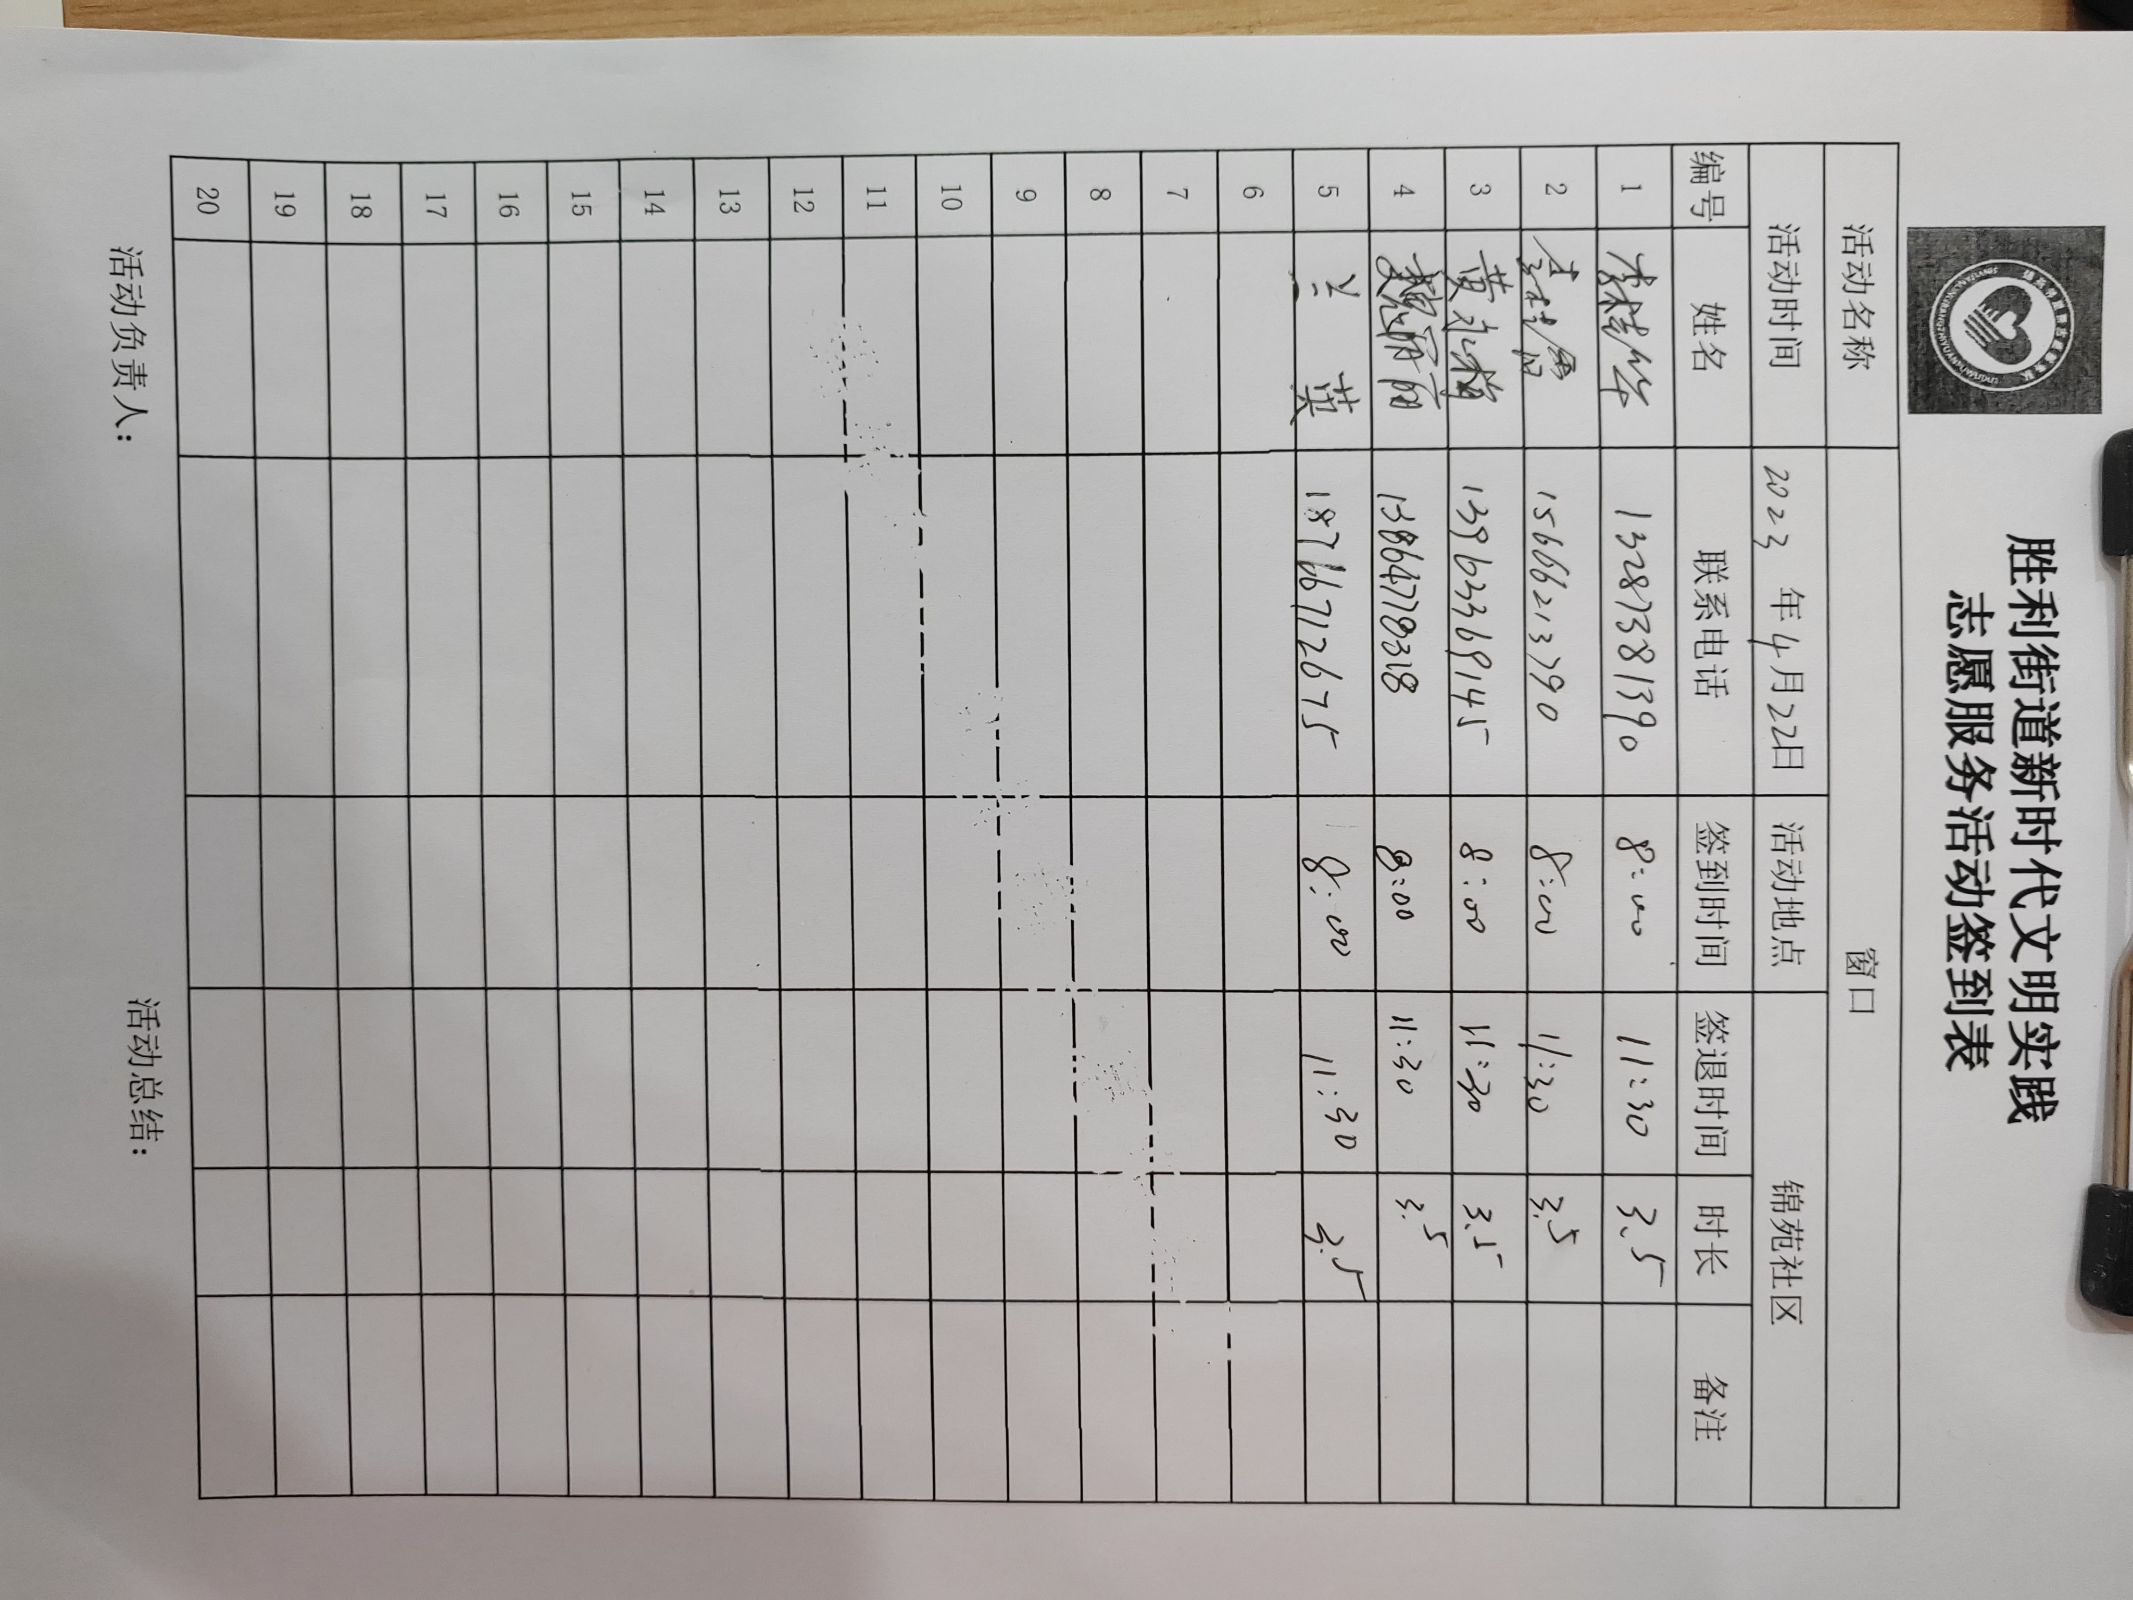 胜利街道新时代文明实践
志愿服务活动签到表
活动名称 窗口
活动时间 2023 年 4月 22日 活动地点 锦苑社区
编号 姓名 联系电话 签到时间 签退时间 时长 备注
1 李桂华 13287381390 8:00 11:30 3.5
2 15666213790 8:00 11:30 3.5
3 黄永梅 139623369145 8:00 11:30 3.5
4 魏丽丽 13864778318 8:00 11:30 3.5
5 兰英 18766712675 8:00 11:30 3.5
6
7
8
9
10
11
12
13
14
15
16
17
18
19
20
活动负责人: 活动总结: